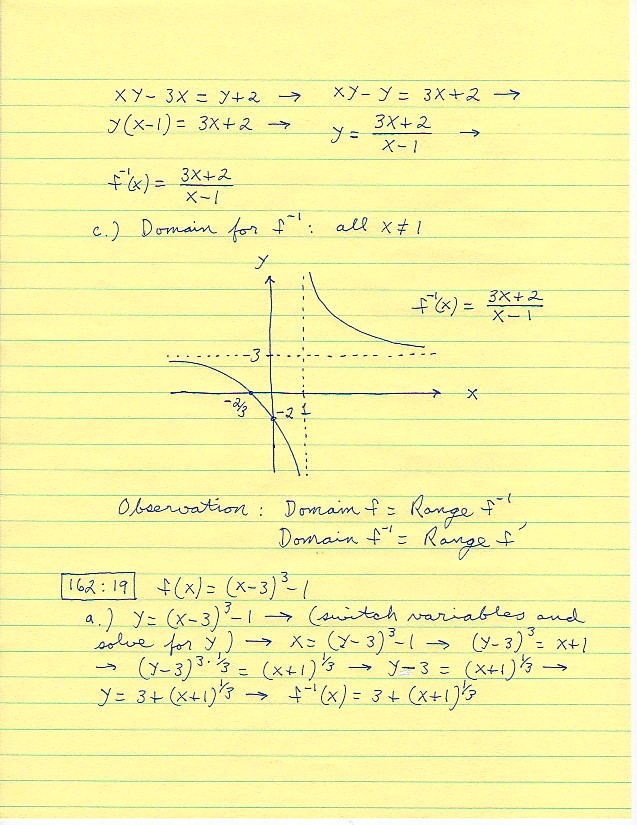 xy - 3x = y+2 → xy - y = 3x+2 →
y(x-1) = 3x+2 → y = (3x+2)/(x-1) →
f⁻¹(x) = (3x+2)/(x-1)
c.) Domain for f⁻¹: all x ≠ 1
y
f⁻¹(x) = (3x+2)/(x-1)
3
x
-2/3 -2 1
Observation : Domain f = Range f⁻¹
Domain f⁻¹ = Range f
162:19 f(x) = (x-3)³-1
a.) y = (x-3)³-1 → (switch variables and
solve for y) → x = (y-3)³-1 → (y-3)³ = x+1
→ (y-3)^(3·1/3) = (x+1)^(1/3) → y-3 = (x+1)^(1/3) →
y = 3+(x+1)^(1/3) → f⁻¹(x) = 3+(x+1)^(1/3)